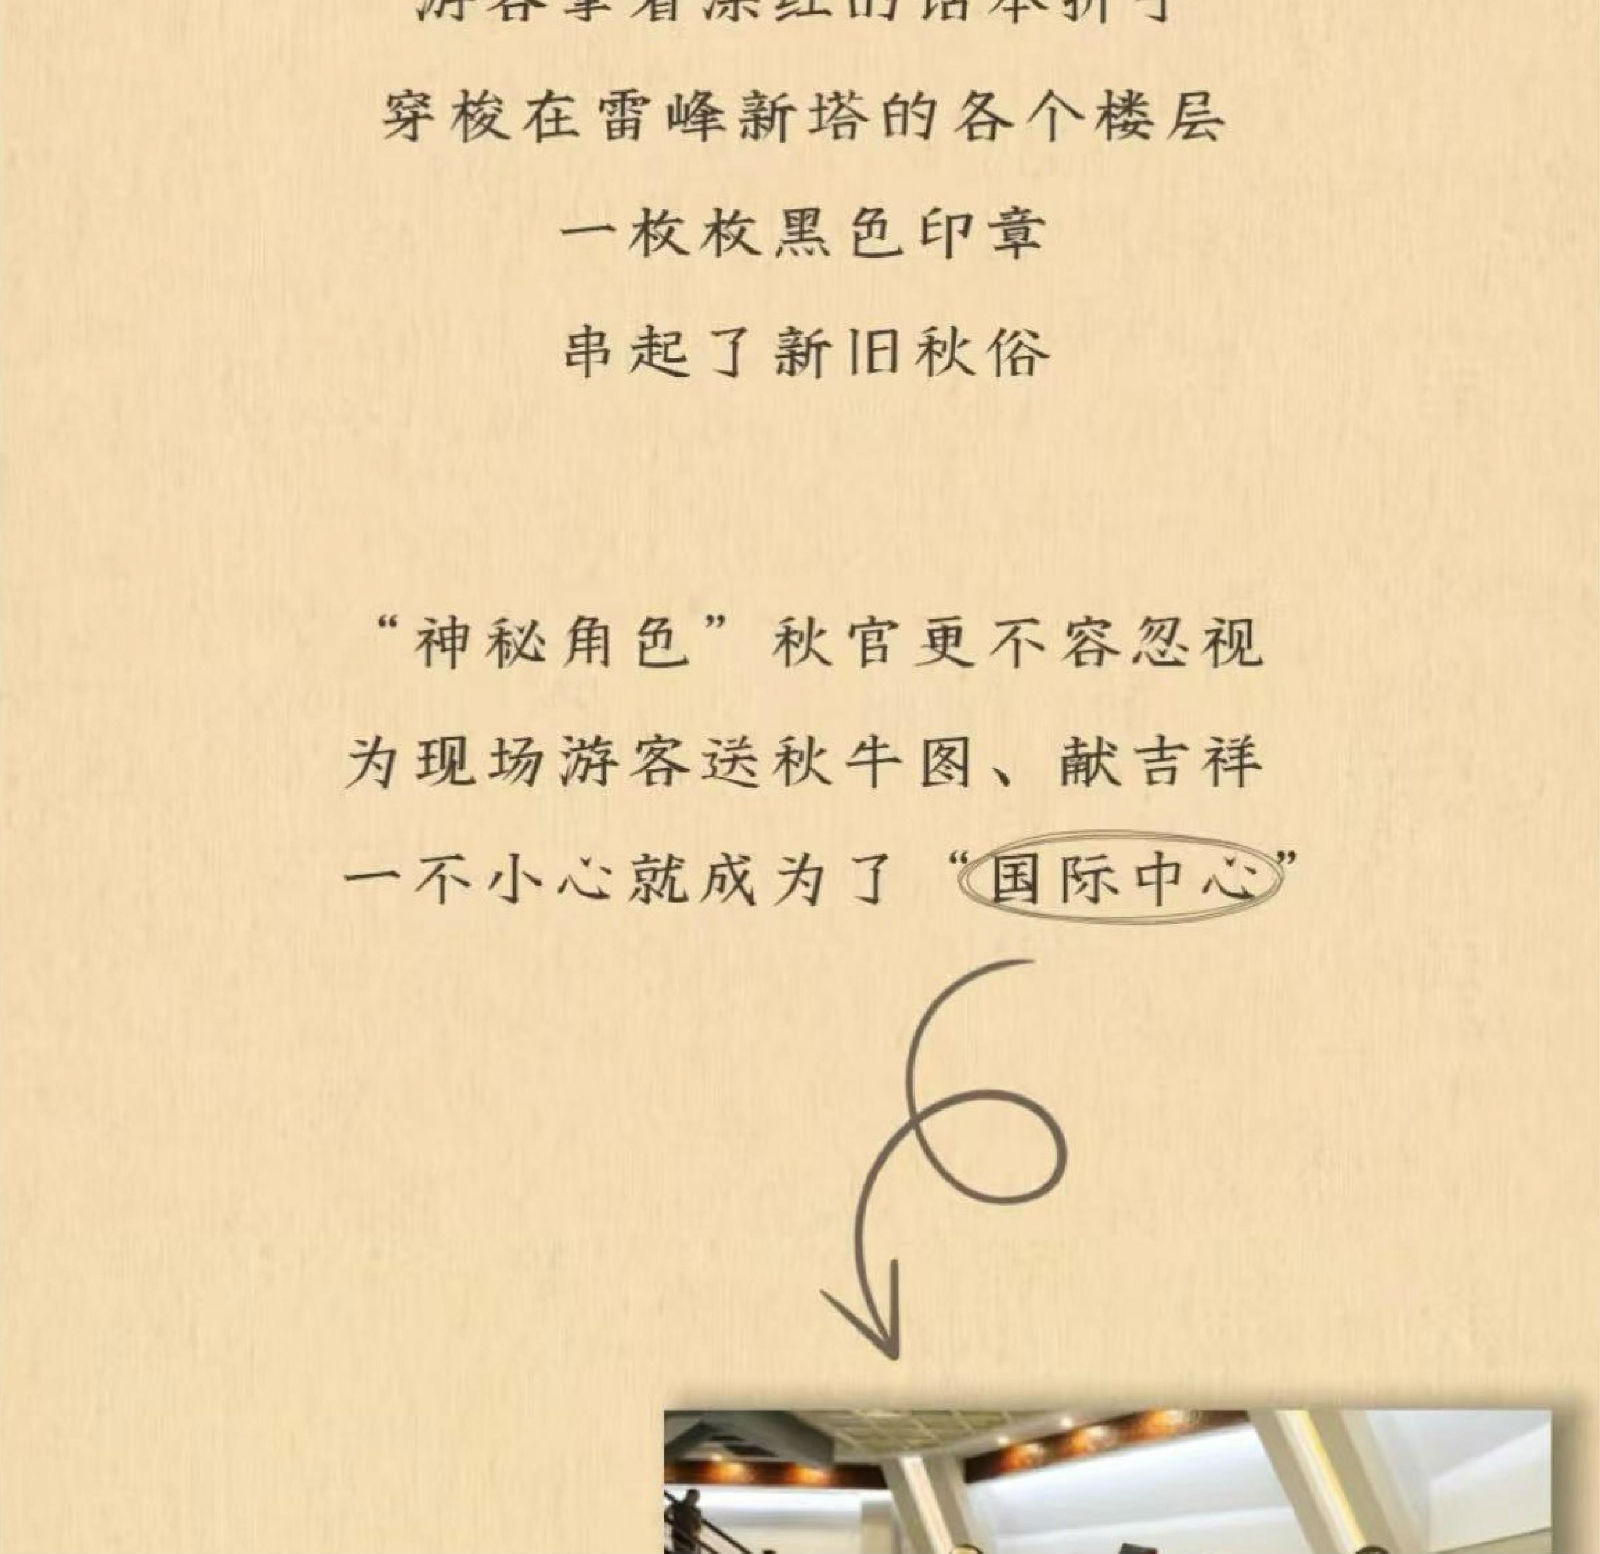 游客拿着深红的话本折子
穿梭在雷峰新塔的各个楼层
一枚枚黑色印章
串起了新旧秋俗
“神秘角色”秋官更不容忽视
为现场游客送秋牛图、献吉祥
一不小心就成为了“国际中心”